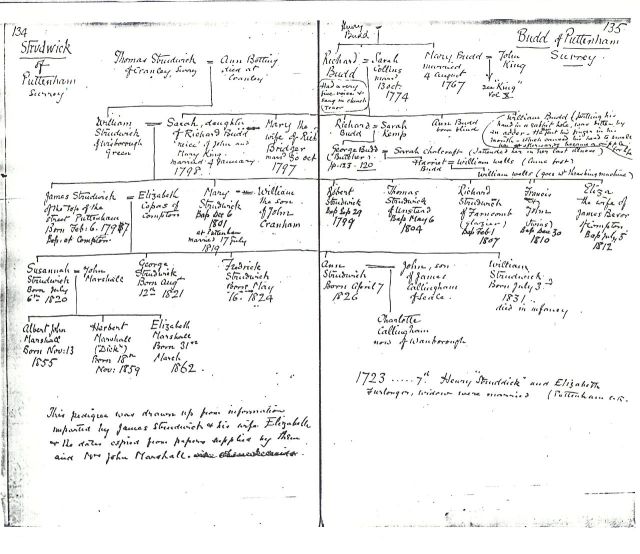 134
Strudwick
of
Puttenham
Surrey
Thomas Strudwick = Ann Botting
of Cranley, Surry died at
Cranley
William = Sarah, daughter
Strudwick of Richard Budd
of Worborough "niece" of John
Green and Mary King.
married 9 January
1798
Mary = the
wife of Rich
Bridger
mard 30 oct
1797
James Strudwick = Elizabeth
of the Top of the Copas of
Street Puttenham Compton
Born Feb: 6. 1799
Bap: at Compton
Mary = William
Bap Dec 6 the son
1801 of John
at Puttenham Cranham
married 17 July
1819
Susannah = John
Strudwick Marshall
Born July
6th 1820
George
Strudwick
Born Aug
12th 1821
Fredrick
Strudwick
Born May
16. 1824
Albert John
Marshall
Born Nov: 13
1855
Herbert
Marshall
("Dick")
Born 18th
Nov: 1859
Elizabeth
Marshall
Born 31st
March
1862.
This pedigree was drawn up from information
imparted by James Strudwick & his wife Elizabeth
& the dates copied from papers supplied by them
and Mrs John Marshall.
135
Budd of Puttenham
Surrey
Henry
Budd
Richard = Sarah
Budd Collins
mard
3 oct
1774
Had a very
fine voice &
sang in church
Tenor
Mary Budd = John
married King
4 August
1767
see "King"
Vol X
Richard = Sarah
Budd Kemp
Ann Budd
born blind
William Budd (putting his
hand in a rabbit hole, was bitten by
an adder. He put his finger in his
mouth
George Budd = Sarah Cholcraft (I attended her in her last illness)
(Butcher)
p. 123-120
Harriet = William Wells (Anne foot)
Budd
William Wells (goes wt thrashing machine)
Robert
Strudwick
Bap Sep 29
1799
Thomas
Strudwick
of Unstead
Bap May 6
1804
Richard
Strudwick
of Farncourt
(glazier)
Bap Feb 1
1807
Francis
John
Bap Dec 30
1810
Eliza
the wife of
James Bevor
of Compton
Bap July 5
1812
Ann = John, son
Strudwick of James
Born April 7 Callingham
1826 of Seale.
William
Strudwick
Born July 3rd
1831.
died in infancy
Charlotte
Callingham
now of Wanborough
1723 ..... 7th Henry "Struddick" and Elizabeth
Furlonger, widow were married (Puttenham C.R.